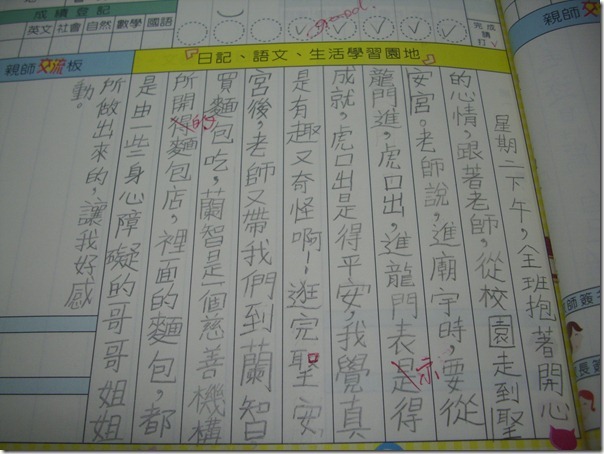 成績登記
英文 社會 自然 數學 國語
Good
完成請打✓
親師交流板
日記、語文、生活學習園地
星期二下午,全班抱著開心
的心情,跟著老師,從校園走到聖
安宮。老師說,進廟宇時,要從
龍門進,虎口出,進龍門表是示得
成就,虎口出是得平安,我覺真
是有趣又奇怪啊~逛完聖安
宮後,老師又帶我們到蘭智
買麵包吃,蘭智是一個慈善機構
所開得的麵包店,裡面的麵包,都
是由一些身心障礙的哥哥姐姐
所做出來的,讓我好感
動。